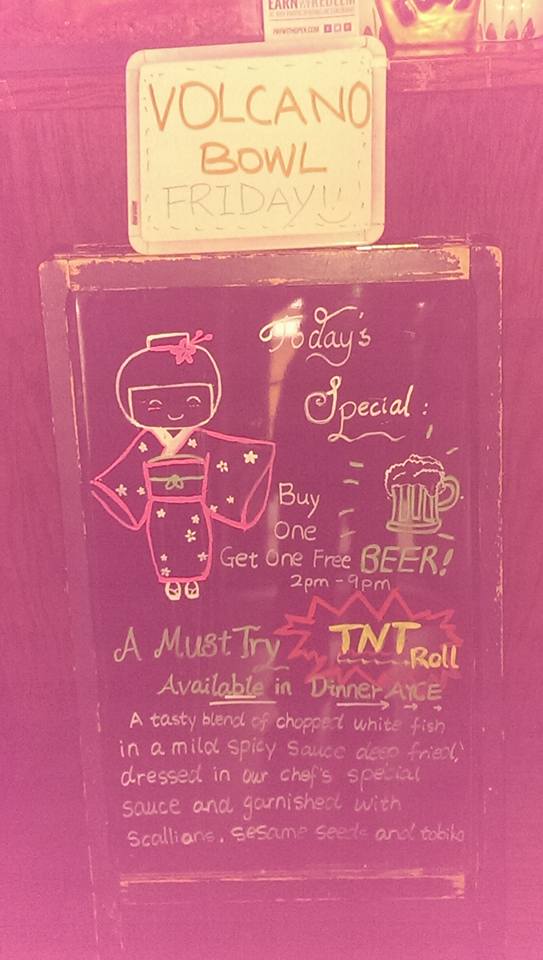 EARN REDEEM
PAYWITHOPEN.COM
VOLCANO
BOWL
FRIDAY!!
Today's
Special :
Buy
One
Get One Free BEER!
2pm - 9pm
A Must Try TNT Roll
Available in Dinner AYCE
A tasty blend of chopped white fish
in a mild spicy sauce deep fried,
dressed in our chef's special
sauce and garnished with
scallians, sesame seeds and tobiko